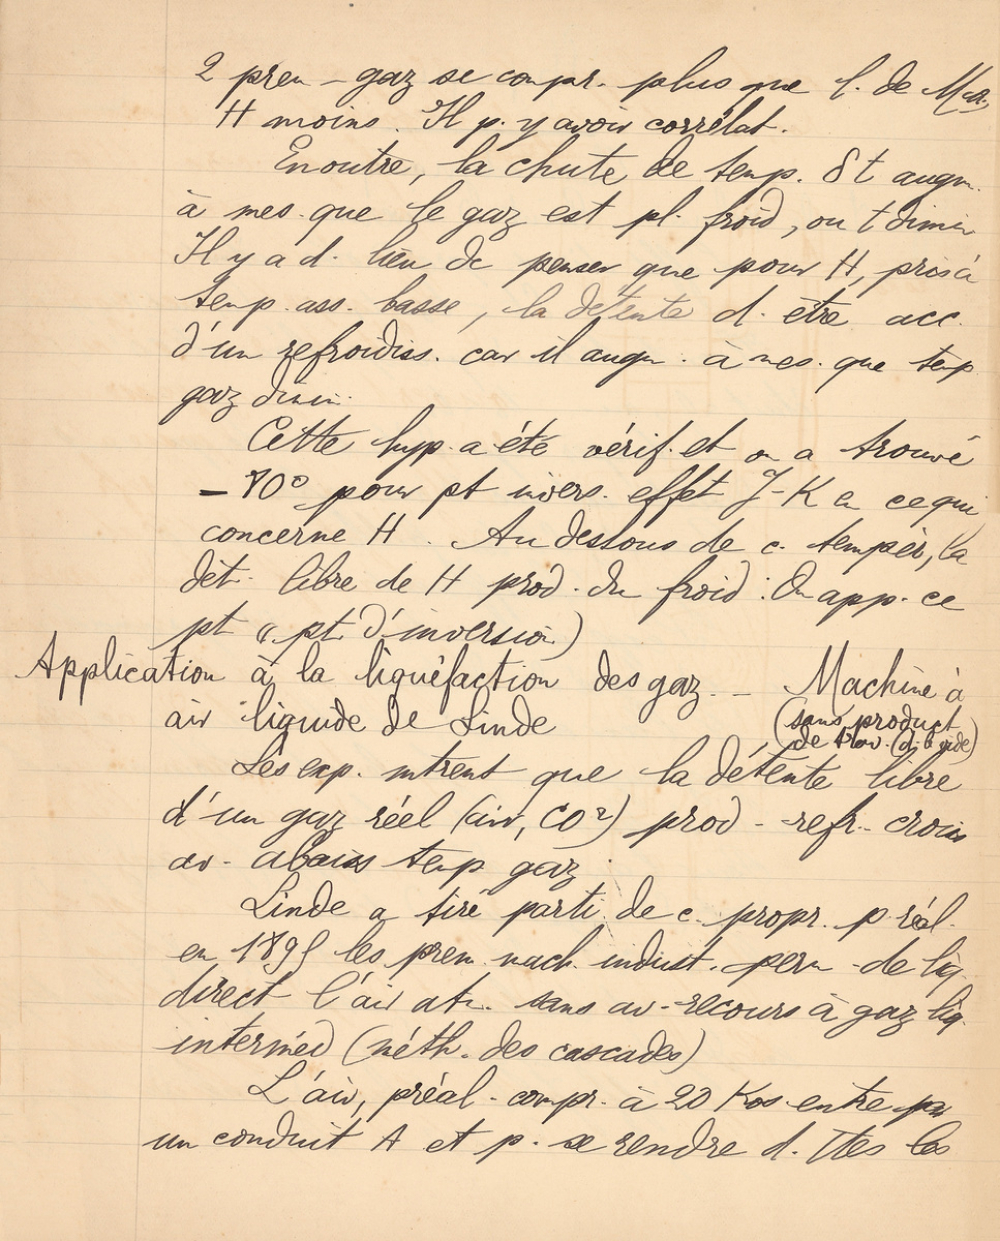 2 prem - gaz se compr. plus que l. de Mar.
H moins. Il p. y avoir corrélat.
En outre, la chute de temp. δt augm.
à mes. que le gaz est pl. froid, ou t dimin
Il y a d. lieu de penser que pour H, pris à
temp. ass. basse, la détente d. être acc.
d'un refroidiss. car il augm. à mes. que temp
gaz dimin.
Cette hyp. a été vérif. et on a trouvé
- 80° pour pt invers. effet J-K en ce qui
concerne H. Au dessous de c. tempér, la
dét. libre de H prod. du froid. On app. ce
pt (pt d'inversion)
Application à la liquéfaction des gaz. - Machine à
air liquide de Linde (sans product
de trav. (d. le vide)
Les exp. mtrent que la détente libre
d'un gaz réel (air, CO²) prod - refr. crois
av. abaiss temp gaz.
Linde a tiré parti de c. propr. p. réal.
en 1895 les prem. mach. indust. perm - de liq
direct l'air atm. sans av - recours à gaz liq.
interméd (méth. des cascades)
L'air, préal - compr. à 20 Kos entre par
un conduit A et p. se rendre d. ttes les